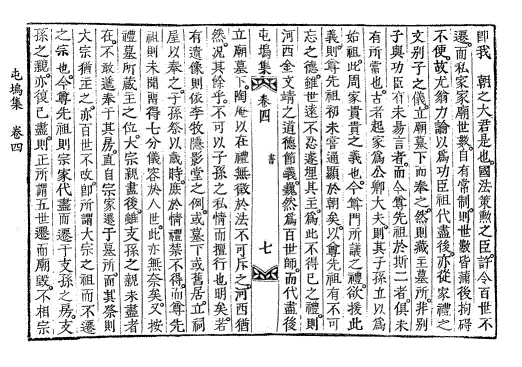 即我 朝之大君是也國法策勲之臣許令百世不
遷而私家家廟世數自有常制則世數皆滿後拘碍
不便故尤翁力論以為功臣祖代盡後亦從家禮之
文別子之儀立廟墓下而奉之然則藏主墓所非別
子與功臣有未易言者而今尊先祖於斯二者俱未
有所當也古者起家爲公卿大夫則其子孫立以爲
始祖此周家貴貴之義也今尊門所議之禮欲援此
義則尊先祖初未嘗通顯於朝矣以尊先祖有不可
忘之德雖世遠不忍遽埋其主爲此不得已之禮則
河西全文靖之道德節義巍然爲百世師而代盡後
屯塢集 卷四 書 七
立廟墓下陶可以在禮無徵於法不可斥之河西猶
然况其餘乎不可以子孫之私情而擅行也明矣若
有遺像則依李牧隱影堂之例或墓下或舊居立祠
屋以奉之子孫祭以歲時庶於情禮禁不得而尊先
祖則未聞留得七分儀容於人世此亦無奈矣又按
禮墓所藏主之位大宗親盡後雖支孫之親未盡者
在不敢遞奉于其房直自宗家遷于墓所而其祭則
大宗猶主之亦百世不改卽所謂大宗之祖而不遷
之宗也今尊先祖則宗家代盡而遷于支孫之房支
孫之親亦復已盡則正所謂五世遷而廟毁不相宗
屯塢集 卷四